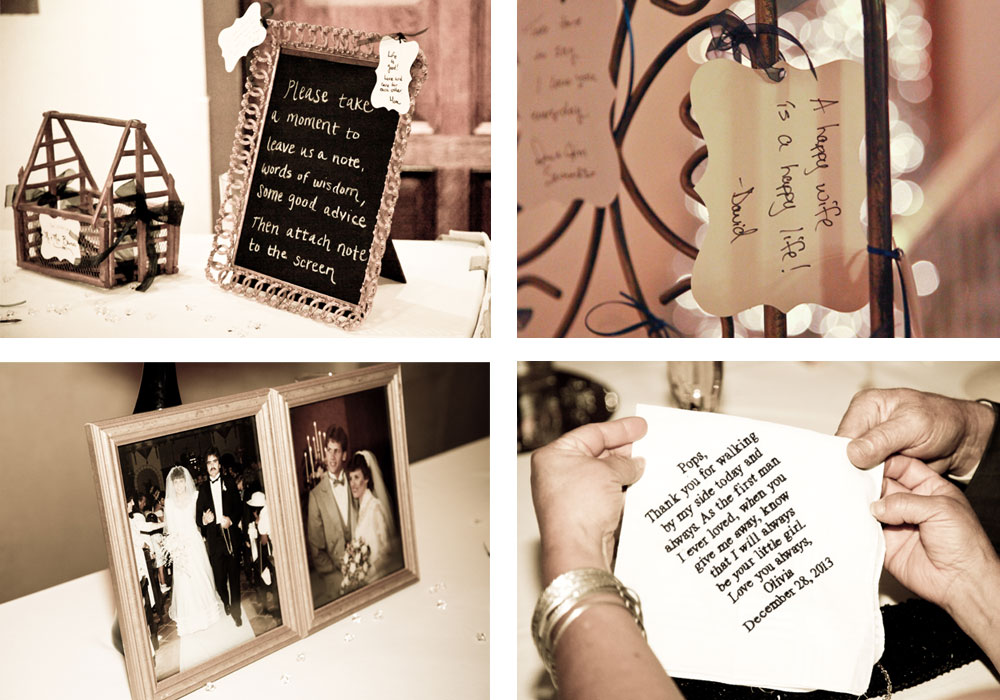 Please take
a moment to
leave us a note,
words of wisdom,
some good advice
Then attach note
to the screen
Life
is
good!
I love you
everyday
A happy wife
is a happy life!
-David
Pops,
Thank you for walking
by my side today and
always. As the first man
I ever loved, when you
give me away, know
that I will always
be your little girl.
Love you always,
Olivia
December 28, 2013